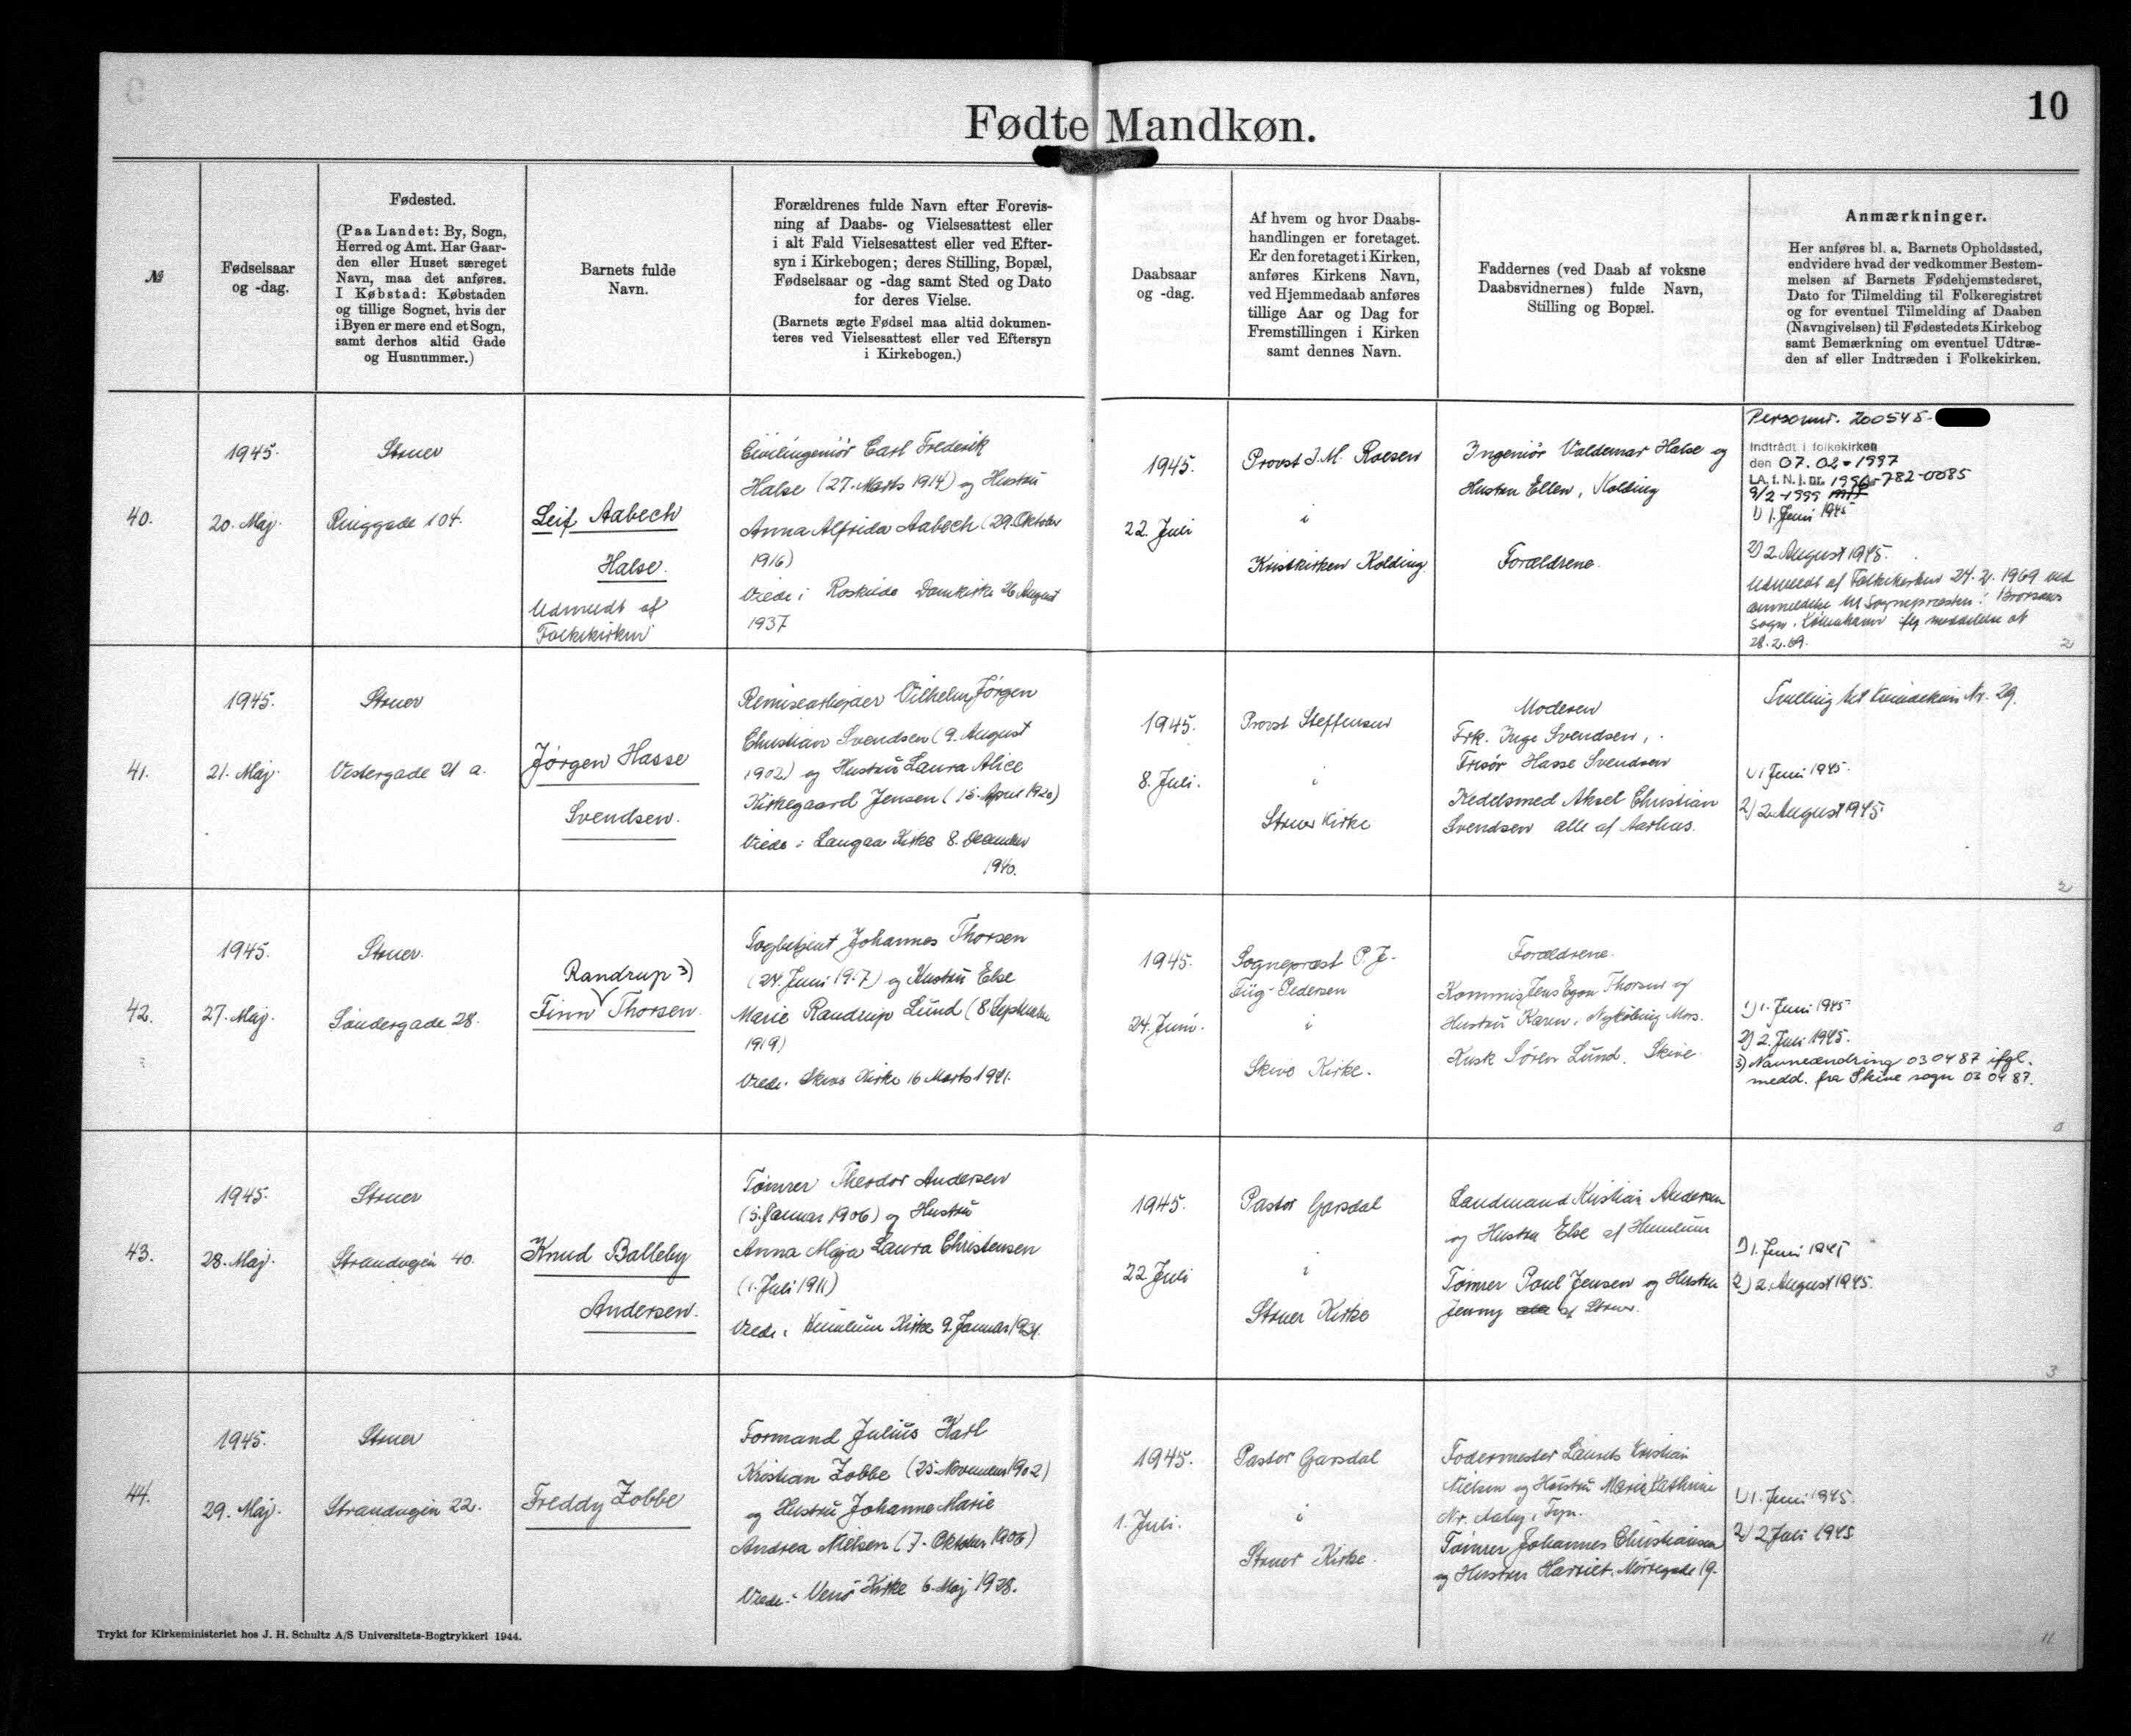 10
Fødte Mandkøn.
№
Fødselsaar
og -dag.
Fødested.
(Paa Landet: By, Sogn,
Herred og Amt. Har Gaar-
den eller Huset særeget
Navn, maa det anføres.
I Købstad: Købstaden
og tillige Sognet, hvis der
i Byen er mere end et Sogn,
samt derhos altid Gade
og Husnummer.)
Barnets fulde
Navn.
Forældrenes fulde Navn efter Forevis-
ning af Daabs- og Vielsesattest eller
i alt Fald Vielsesattest eller ved Efter-
syn i Kirkebogen; deres Stilling, Bopæl,
Fødselsaar og -dag samt Sted og Dato
for deres Vielse.
(Barnets ægte Fødsel maa altid dokumen-
teres ved Vielsesattest eller ved Eftersyn
i Kirkebogen.)
Daabsaar
og -dag.
Af hvem og hvor Daabs-
handlingen er foretaget.
Er den foretaget i Kirken,
anføres Kirkens Navn,
ved Hjemmedaab anføres
tillige Aar og Dag for
Fremstillingen i Kirken
samt dennes Navn.
Faddernes (ved Daab af voksne
Daabsvidnernes) fulde Navn,
Stilling og Bopæl.
Anmærkninger.
Her anføres bl. a. Barnets Opholdssted,
endvidere hvad der vedkommer Bestem-
melsen af Barnets Fødehjemstedsret,
Dato for Tilmelding til Folkeregistret
og for eventuel Tilmelding af Daaben
(Navngivelsen) til Fødestedets Kirkebog
samt Bemærkning om eventuel Udtræ-
den af eller Indtræden i Folkekirken.
40.
1945.
20. Maj.
Struer
Ringgade 104.
Leif Aabech
Halse.
Udmeldt af
Folkekirken
Civilingeniør Carl Frederik
Halse (27. Marts 1914) og Hustru
Anna Alfrida Aabech (29. Oktober
1916)
Viede i Roskilde Domkirke 26 August
1937
1945.
22. Juli
Provst J. M. Roesen
i
Kristkirken Kolding.
Ingeniør Valdemar Halse og
Hustru Ellen, Kolding
Forældrene.
Personnr. 200545-
Indtrådt i folkekirken
den 07.02-1997
LA. f. N. j. nr. 1996-782-0085
9/2-1999
1) 1. Juni 1945
2) 2 August 1945.
Udmeldt af Folkekirken 24.2.1969 ved
anmeldelse til Sognepræsten i Brorsons
sogn, København ifg meddelelse af
28.2.69.
2
41.
1945.
21. Maj.
Struer
Vestergade 21 a.
Jørgen Hasse
Svendsen.
Remisearbejder Vilhelm Jørgen
Christian Svendsen (9. August
1902) og Hustru Laura Alice
Kirkegaard Jensen (15. April 1920)
Viede i Langaa Kirke 8. December
1940.
1945.
8. Juli.
Provst Steffensen
i
Struer Kirke
Moderen
Frk. Inge Svendsen,
Frisør Hasse Svendsen
Kedelsmed Aksel Christian
Svendsen alle af Aarhus.
Tvilling til Kvindekøn Nr. 29.
1) 1 Juni 1945.
2) 2 August 1945.
2
42.
1945.
27. Maj.
Struer.
Søndergade 28.
Randrup 3)
Finn Thorsen.
Togbetjent Johannes Thorsen
(24. Juni 1917) og Hustru Else
Marie Randrup Lund (8. September
1919)
Viede i Skive Kirke 16 Marts 1941.
1945.
24. Juni.
Sognepræst P. J.
Fiig-Pedersen
i
Skive Kirke.
Forældrene.
Kommis Jens Egon Thorsen og
Hustru Karen, Nykøbing Mors.
Kusk Søren Lund. Skive
1) 1. Juni 1945
2) 2. Juli 1945.
3) Navneændring 030487 ifgl.
medd. fra Skive sogn 03 04 87.
0
43.
1945.
28. Maj.
Struer
Strandvejen 40.
Knud Balleby
Andersen.
Tømrer Theodor Andersen
(5. Januar 1906) og Hustru
Anna Maja Laura Christensen
(1. Juli 1911)
Viede i Humlum Kirke 9. Januar 1931.
1945.
22 Juli
Pastor Garsdal
i
Struer Kirke
Landmand Kristian Andersen
og Hustru Else af Humlum
Tømrer Poul Jensen og Hustru
Jenny af Struer.
1) 1. Juni 1945
2) 2. August 1945.
3
44.
1945.
29. Maj.
Struer
Strandvejen 22.
Freddy Zobbe
Formand Julius Karl
Kristian Zobbe (25. November 1902)
og Hustru Johanne Marie
Andrea Nielsen (7. Oktober 1906)
Viede i Venø Kirke 6. Maj 1928.
1945.
1. Juli.
Pastor Garsdal
i
Struer Kirke.
Fodermester Laurits Kristian
Nielsen og Hustru Marie Kathrine
Nr. Aaby, Fyn.
Tømrer Johannes Christiansen
og Hustru Harriet, Nørregade 19.
1) 1. Juni 1945.
2) 2 Juli 1945
11
Trykt for Kirkeministeriet hos J. H. Schultz A/S Universitets-Bogtrykkeri 1944.